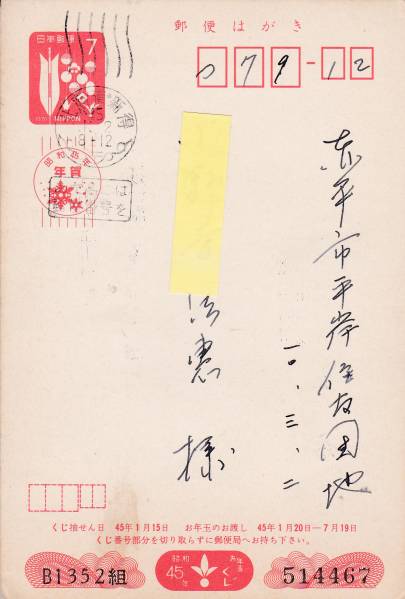 郵便はがき
日本郵便
7
NIPPON
079-12
新得
昭和45年
年賀
赤平市平岸住友団地
一〇、三、二
恵様
くじ抽せん日 45年1月15日 お年玉のお渡し 45年1月20日—7月19日
くじ番号部分を切り取らずに郵便局へお持ち下さい。
B1352組
昭和
45年
お年玉
くじ
514467